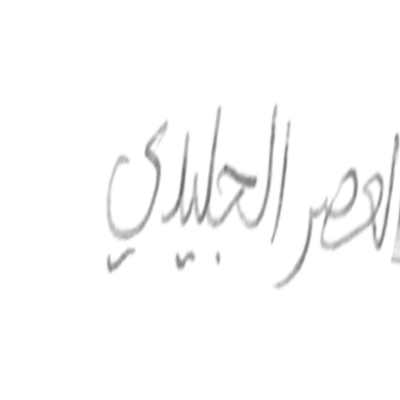 العصر الجليدي